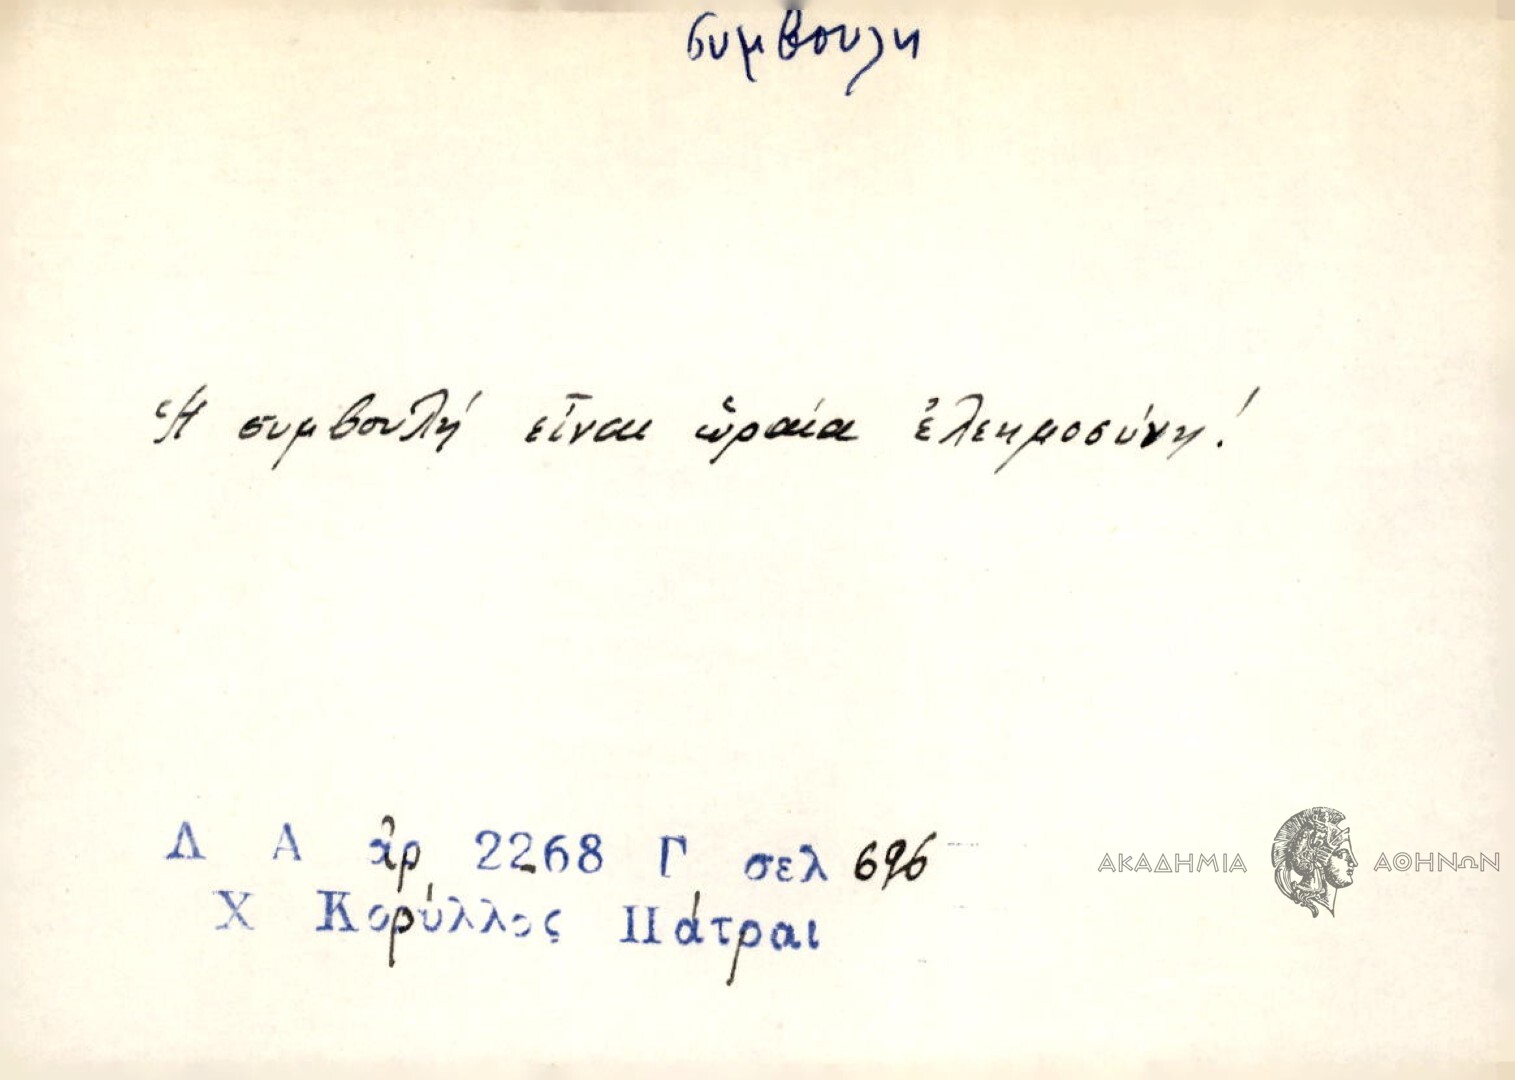 συμβουλη
Ἡ συμβουλή εἶναι ὡραία ἐλεημοσύνη!
Λ Α ἀρ 2268 Γ σελ 696
Χ Κορύλλος Πάτραι
ΑΚΑΔΗΜΙΑ ΑΘΗΝΩΝ